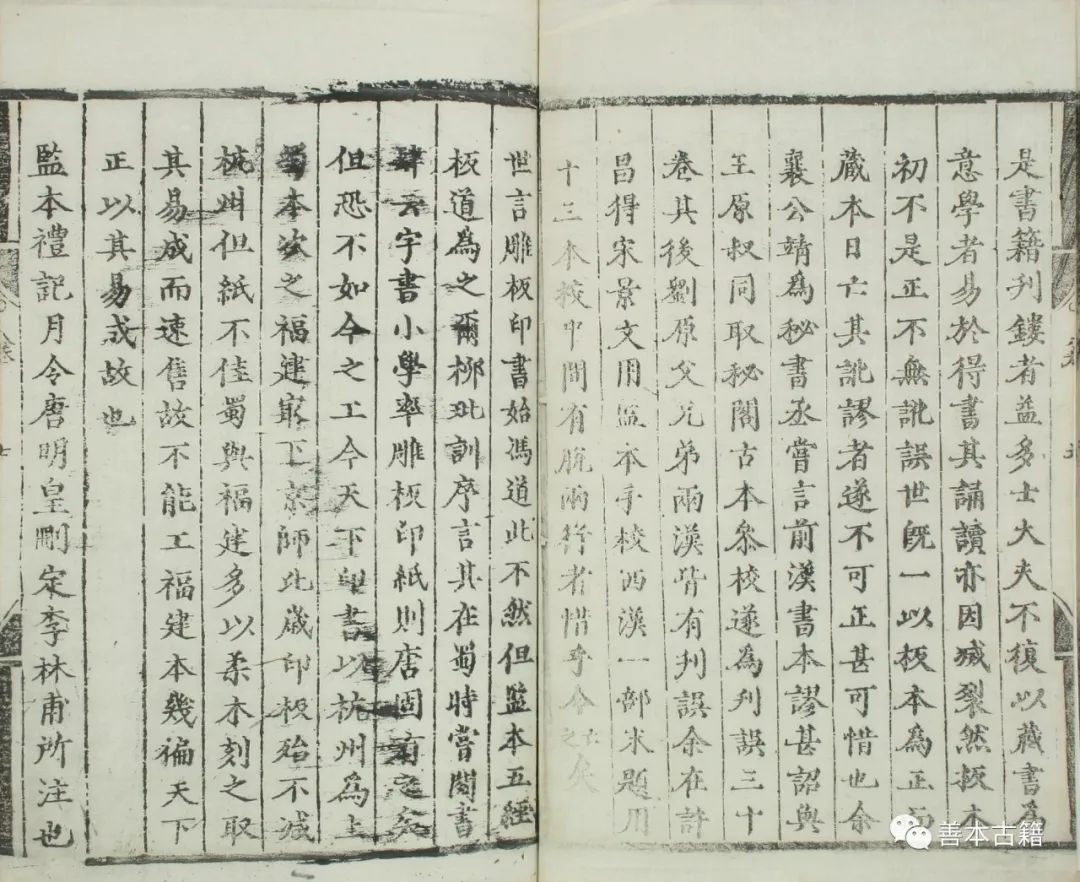 是書籍刊鏤者益多士大夫不復以藏書為
意學者易於得書其誦讀亦因烕裂然板本
初不是正不無訛誤世既一以板本為正而
藏本日亡其訛謬者遂不可正甚可惜也余
襄公靖為秘書丞嘗言前漢書本謬甚詔與
王原叔同取秘閣古本參校遂為刋誤三十
卷其後劉原父兄弟兩漢皆有刋誤余在許
昌得宋景文用監本手校西漢一部末題用
十三本校中間有脫兩行者惜乎今亡之矣
世言雕板印書始馮道此不然但監本五經
板道為之爾柳玭訓序言其在蜀時嘗閱書
肆云字書小學率雕板印紙則唐固有之矣
但恐不如今之工今天下印書以杭州為上
蜀本次之福建㝡下京師比歲印板殆不減
杭州但紙不佳蜀與福建多以柔木刻之取
其易成而速售故不能工福建本幾徧天下
正以其易成故也
監本禮記月令唐明皇刪定李林甫所注也
善本古籍